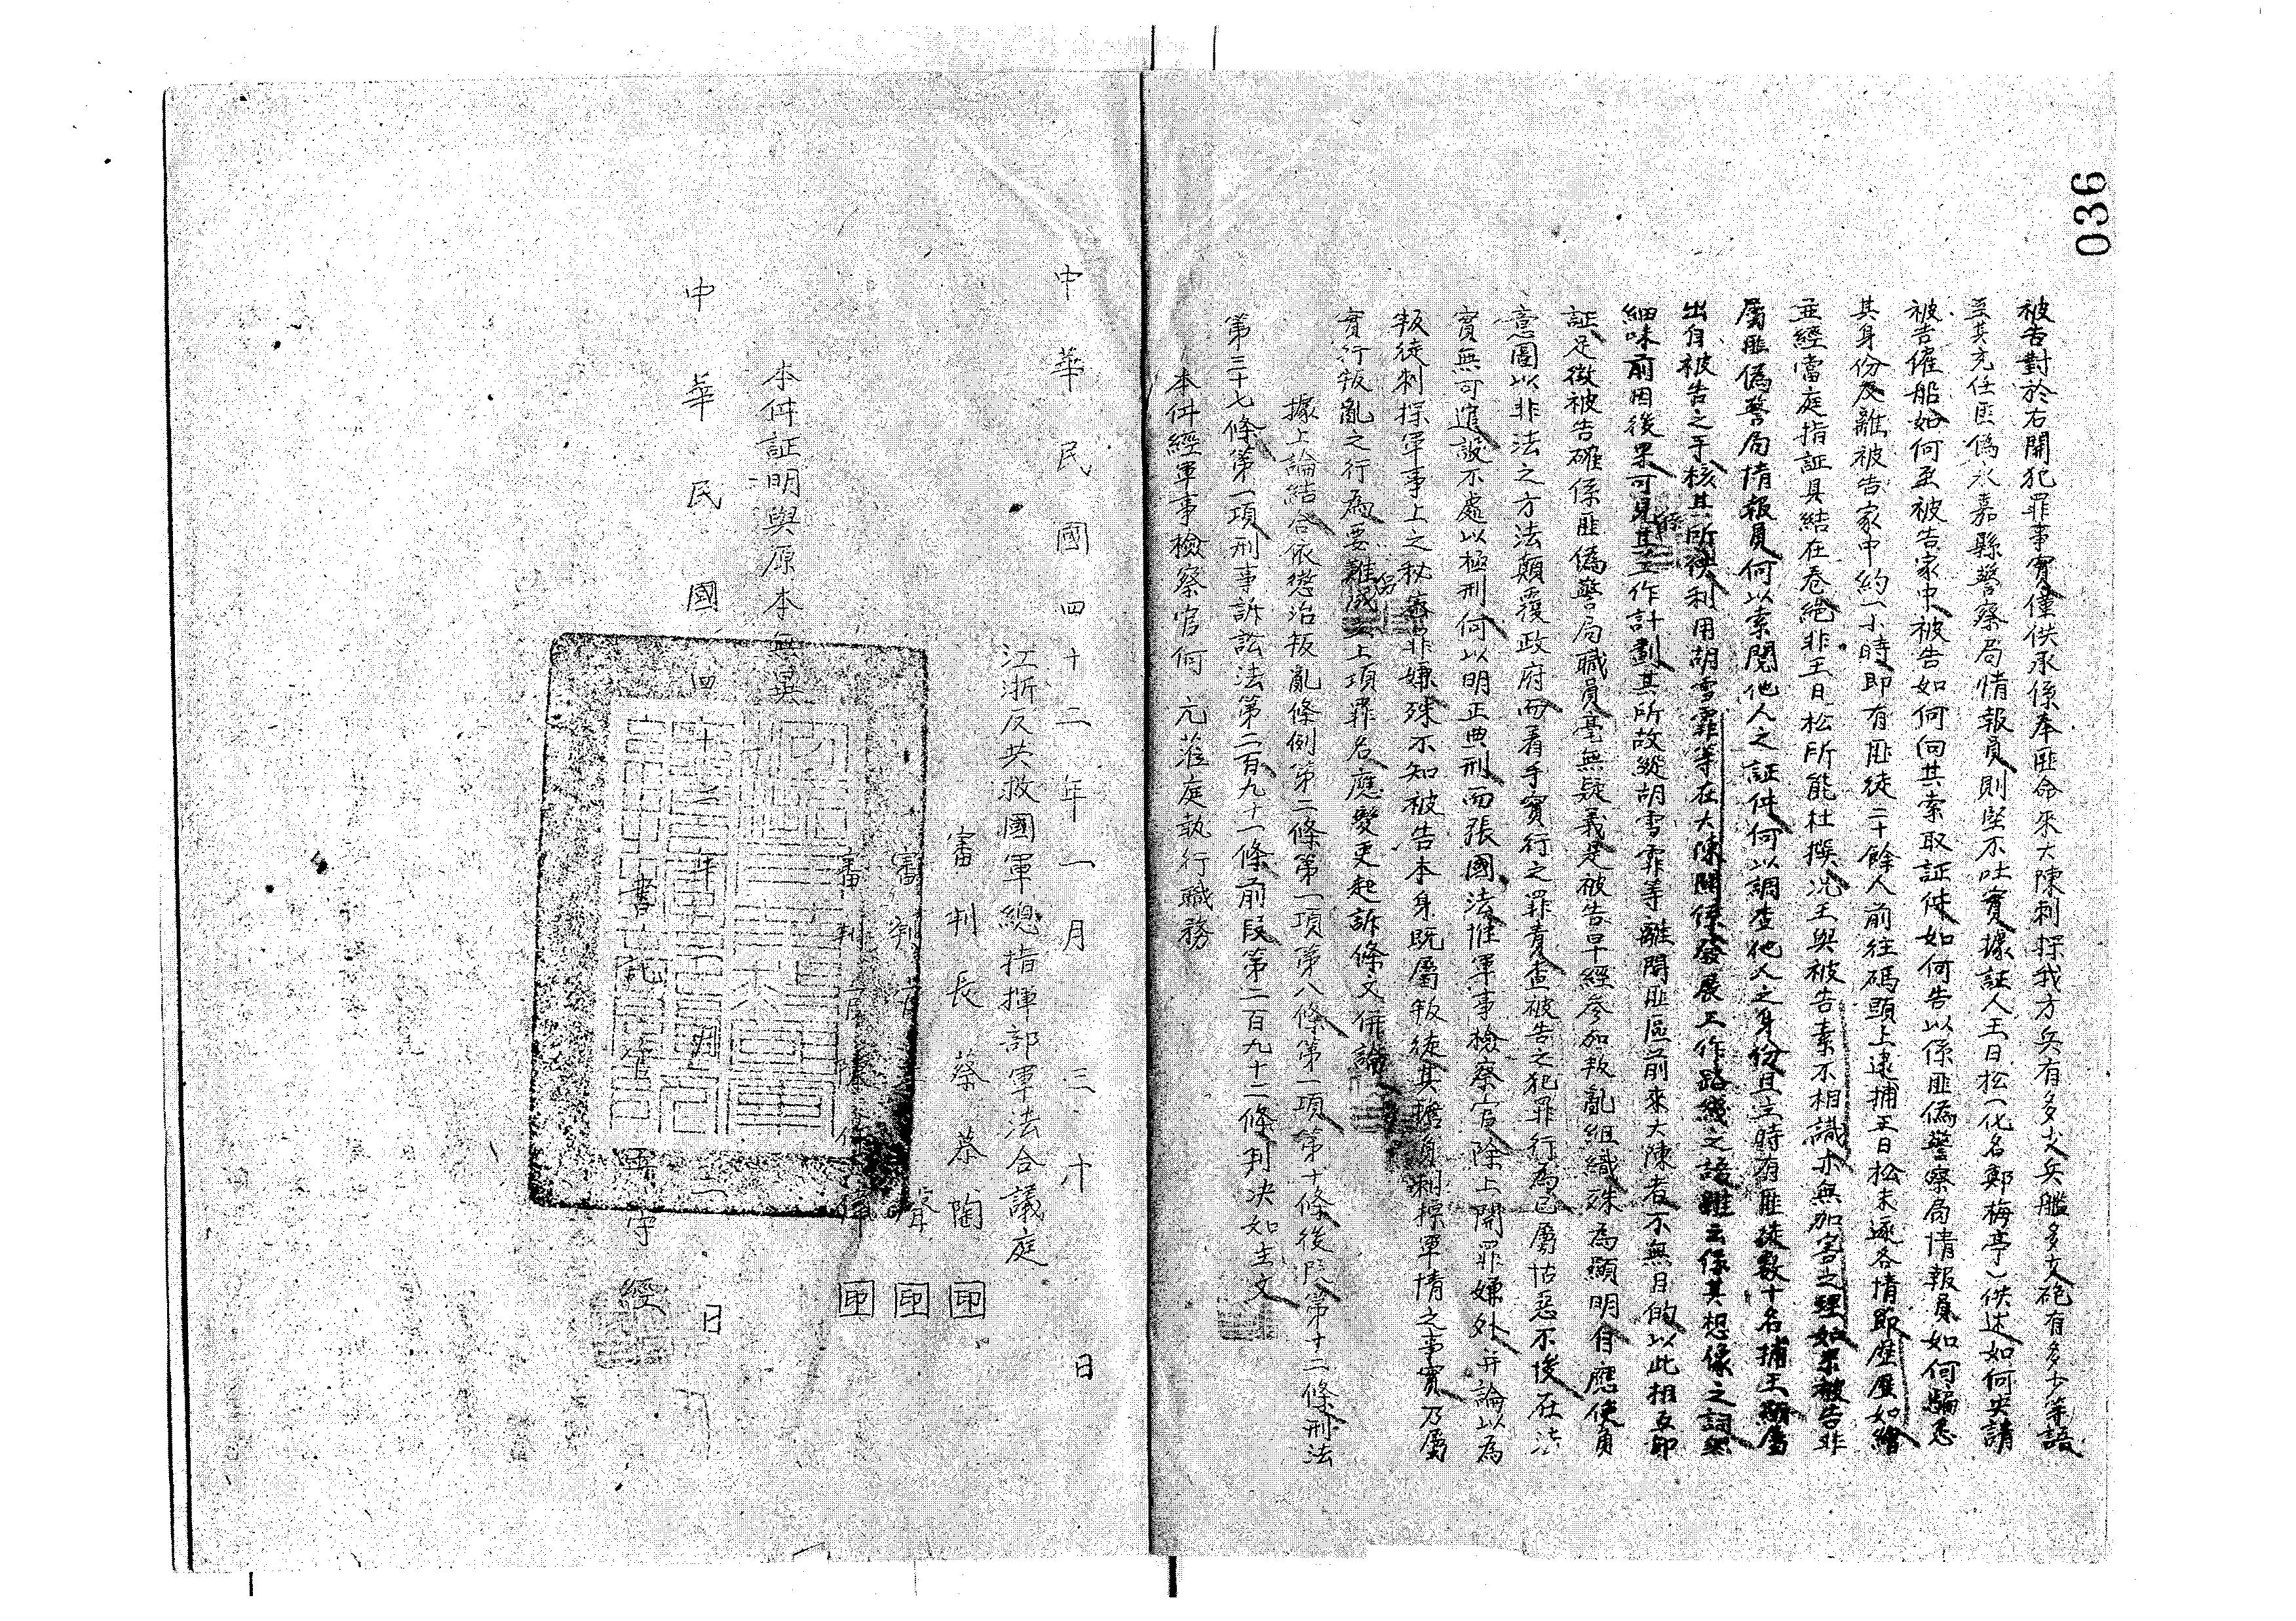 036
被告對於右開犯罪事實僅供承係奉匪命來大陳刺探我方兵有多少兵艦多少砲有多少等語
至其充任匪偽永嘉縣警察局情報員則堅不吐實據証人王日松(化名鄭梅亭)供述如何央請
被告僱船如何至被告家中被告如何向其索取証件如何告以係匪偽警察局情報員如何騙悉
其身份及離被告家中約一小時即有匪徒二十餘人前往碼頭上逮捕王日松未遂各情即歷歷如繪
並經當庭指証具結在卷絕非王日松所能杜撰況王與被告素不相識亦無加害之理如果被告非
屬匪偽警局情報員何以索閱他人之証件何以調查他人之身份且立時有匪徒數十名捕王顯屬
出自被告之手核其所供利用胡雪霏等在大陳關係發展工作路綫之語雖云係其想像之詞與
細味前因後果可見其工作計劃其所故縱胡雪霏等離開匪區前來大陳者不無目的以此相互印
証足徵被告確係匪偽警局職員毫無疑義是被告早經參加叛亂組織殊為顯明自應使負
意圖以非法之方法顛覆政府而着手實行之罪責查被告之犯罪行為已屬怙惡不悛在法
實無可逭設不處以極刑何以明正典刑而張國法惟軍事檢察官除上開罪嫌外并論以為
叛徒刺探軍事上之秘密罪嫌殊不知被告本身既屬叛徒其擔負刺探軍情之事實乃屬
實行叛亂之行為要難成立上項罪名應變更起訴條文併論
據上論結合依懲治叛亂條例第二條第一項第八條第一項第十條後段第十二條刑法
第三十七條第一項刑事訴訟法第二百九十一條前段第二百九十二條判決如主文
本件經軍事檢察官何元蒞庭執行職務
中華民國四十二年一月三十日
江浙反共救國軍總指揮部軍法合議庭
審判長蔡慕陶 印
審判官 印
審判官陳 印
本件証明與原本無異
中華民國四十二年二月二日
書記官